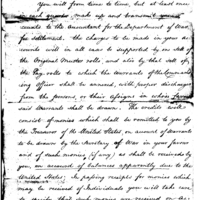 You will from time to time, but at least once
made up and transmit your
accounts to the Accountant for the Department of War
for settlement. the charges to be made in your ac
counts will in all cases be supported by one set of
the Original Muster rolls and also by that set of
the Pay rolls to which the warrants of the Command
ing officer shall be annexed, with proper discharges
the persons, or their assigns in whose favor
said warrants shall be drawn. The credits will
consist of monies which shall be remitted to you by
the Treasurer of the United States, on account of warrants
to be drawn by the Secretary of War in your favor
and of such monies, (if any) as shall be received by
you on account of balances apparently due to the
United States. In passing receipts for monies which
may be received of Individuals you will take care
to specify that such monies are received on